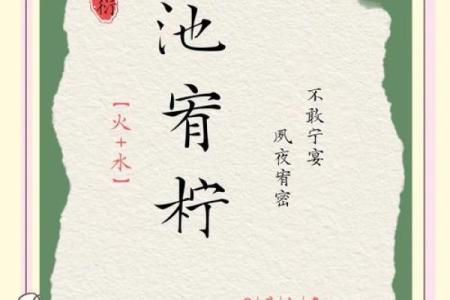 不敢宁宴
夙夜宥密
池宥柠
【火+水】
衍